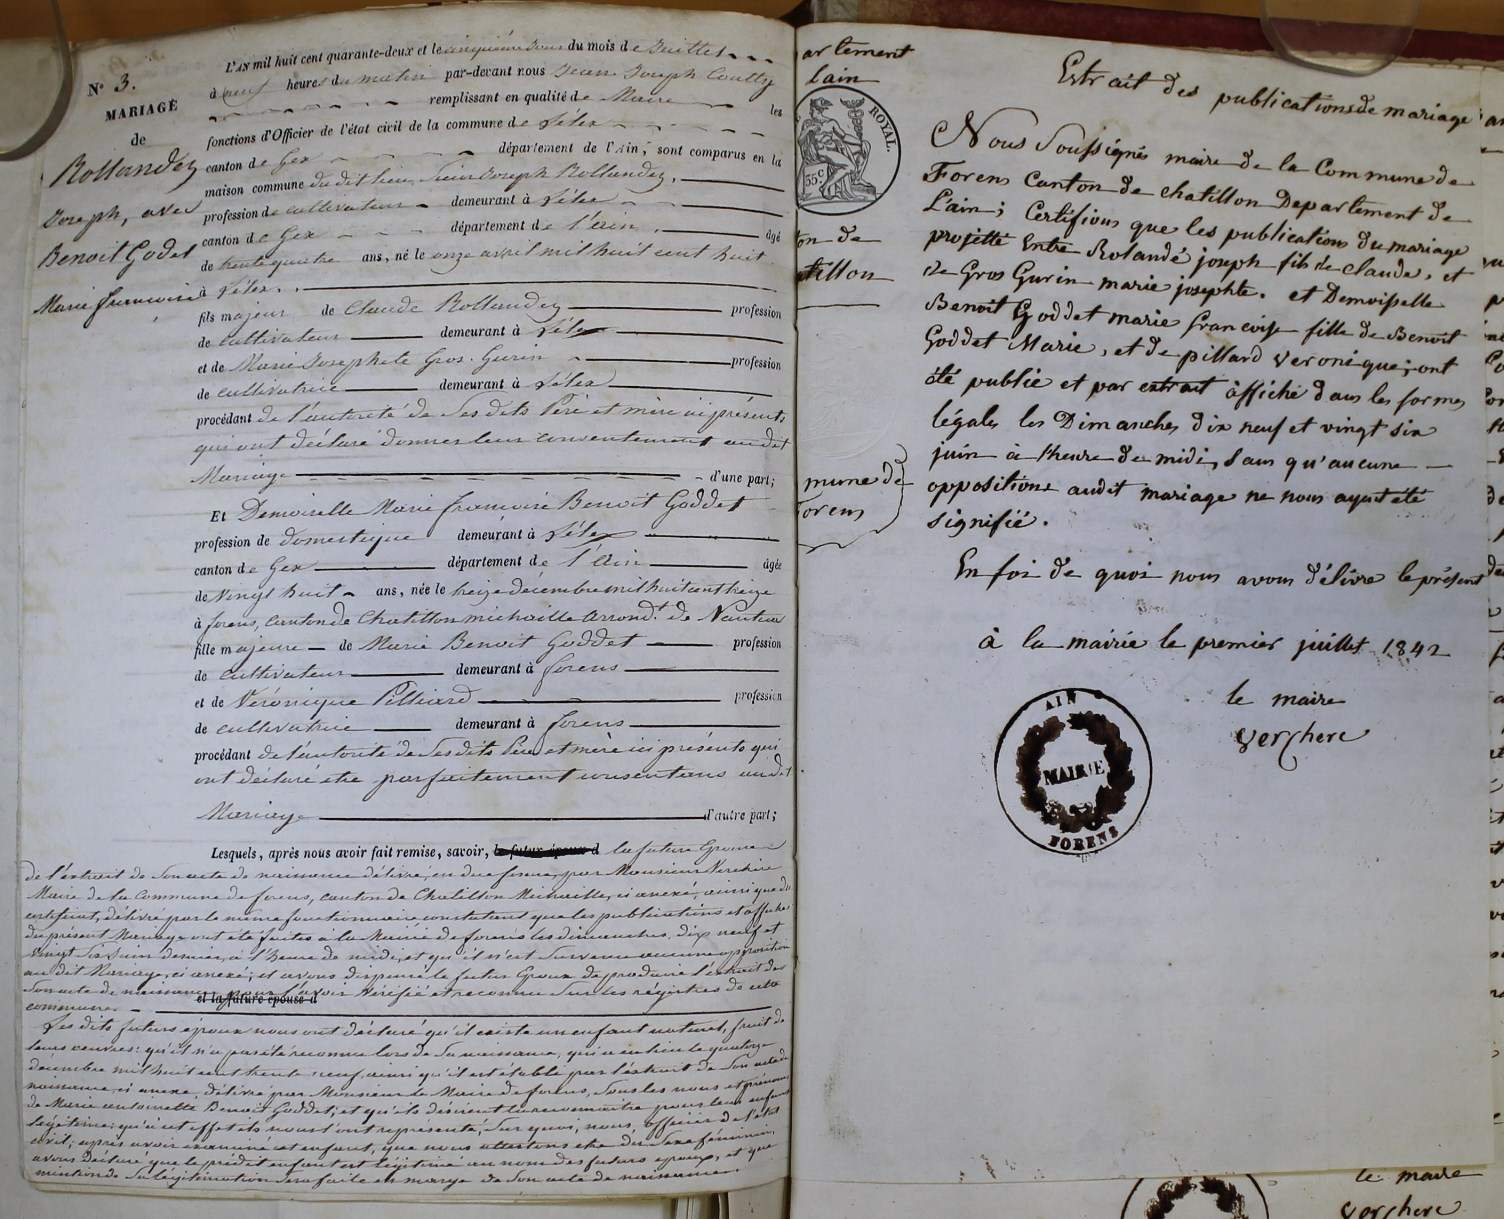 N° 3.
MARIAGE
de
Rollandez
Joseph, avec
Benoit Godet
Marie françoise
L'AN mil huit cent quarante-deux et le cinquième jour du mois de Juillet
à neuf heures du matin par-devant nous Jean Joseph Coutty
remplissant en qualité de Maire les
fonctions d'Officier de l'état civil de la commune de Lélex
canton de Gex département de l'Ain, sont comparus en la
maison commune du dit lieu, Sieur Joseph Rollandez,
profession de cultivateur demeurant à Lélex
canton de Gex département de l'ain, âgé
de trente quatre ans, né le onze avril mil huit cent huit
à Lélex.
fils majeur de Claude Rollandez profession
de cultivateur demeurant à Lélex
et de Marie Josephete Gros-Gurin profession
de cultivatrice demeurant à Lélex
procédant de l'autorité de Ses dits Père et mère ici présents
qui ont déclaré donner leur consentement au dit
Mariage d'une part;
Et Demoiselle Marie françoise Benoit Goddet
profession de domestique demeurant à Lélex
canton de Gex département de l'Ain âgée
de Vingt huit ans, née le treize décembre mil huit cent treize
à forens, canton de Chatillon michaille arrondt. de Nantua
fille majeure de Marie Benoit Goddet profession
de cultivateur demeurant à forens
et de Véronique Pilliard profession
de cultivatrice demeurant à forens
procédant de l'autorité de Ses dits Père et mère ici présents qui
ont déclaré être parfaitement consentans au dit
Mariage d'autre part;
Lesquels, après nous avoir fait remise, savoir, le futur époux d la future Epouse
de l'extrait de Son acte de naissance délivré, en due forme, par Monsieur Verchère
Maire de la Commune de forens, canton de Chatillon Michaille, ci anexé, ainsi que du
certificat, délivré par le même fonctionnaire constatant que les publications et affiches
du présent Mariage ont été faites à la Mairie de forens les dimanches, dix neuf et
vingt Six Juin dernier, à l'heure de midi, et qu'il n'est Survenu aucune opposition
au dit Mariage, ci anexé; et avons dispensé le futur Epoux de produire l'extrait de
Son acte de naissance, pour l'avoir vérifié et reconnu Sur les régistres de cette
et la future épouse d
commune.
Les dits futurs époux nous ont déclaré qu'il existe un enfant naturel, fruit de
leurs œuvres: qu'il n'a pas été reconnu lors de Sa naissance, qui a eu lieu le quatorze
décembre mil huit cent trente neuf, ainsi qu'il est établi par l'extrait de Son acte de
naissance, ci anexé, délivré par Monsieur le Maire de forens, Sous les noms et prénoms
de Marie antoinette Benoit Goddet; et qu'ils désirent la reconnaitre pour leur enfant
légitime: qu'à cet effet ils nous l'ont représenté; Sur quoi, nous, officier de l'état
civil, après avoir examiné cet enfant, que nous attestons être du Sexe féminin,
avons déclaré que le prédit enfant est légitimé au nom des futurs époux, et que
mention de Sa légitimation Sera faite en marge de Son acte de naissance.
artement
lain
ROYAL.
35c
on de
atillon
mune de
orens
Extrait des publications de mariage
Nous Soussignés maire de la Commune de
Forens Canton de chatillon Departement de
L'ain; Certifions que les publications du mariage
projetté Entre Rolandé joseph fils de claude, et
de Gros Gurin marie josephte. et Demoiselle
Benoit Goddet marie francoise fille de Benoit
Goddet Marie, et de pillard veronique; ont
été publié et par extrait affiché dans les formes
légales les Dimanches dix neuf et vingt six
juin à l'heure de midi, Sans qu'aucune
oppositions audit mariage ne nous ayent été
signifié.
En foi de quoi nous avons délivre le présent
à la mairie le premier juillet 1842
le maire
verchere
AIN
MAIRIE
FORENS
le maire
verchere